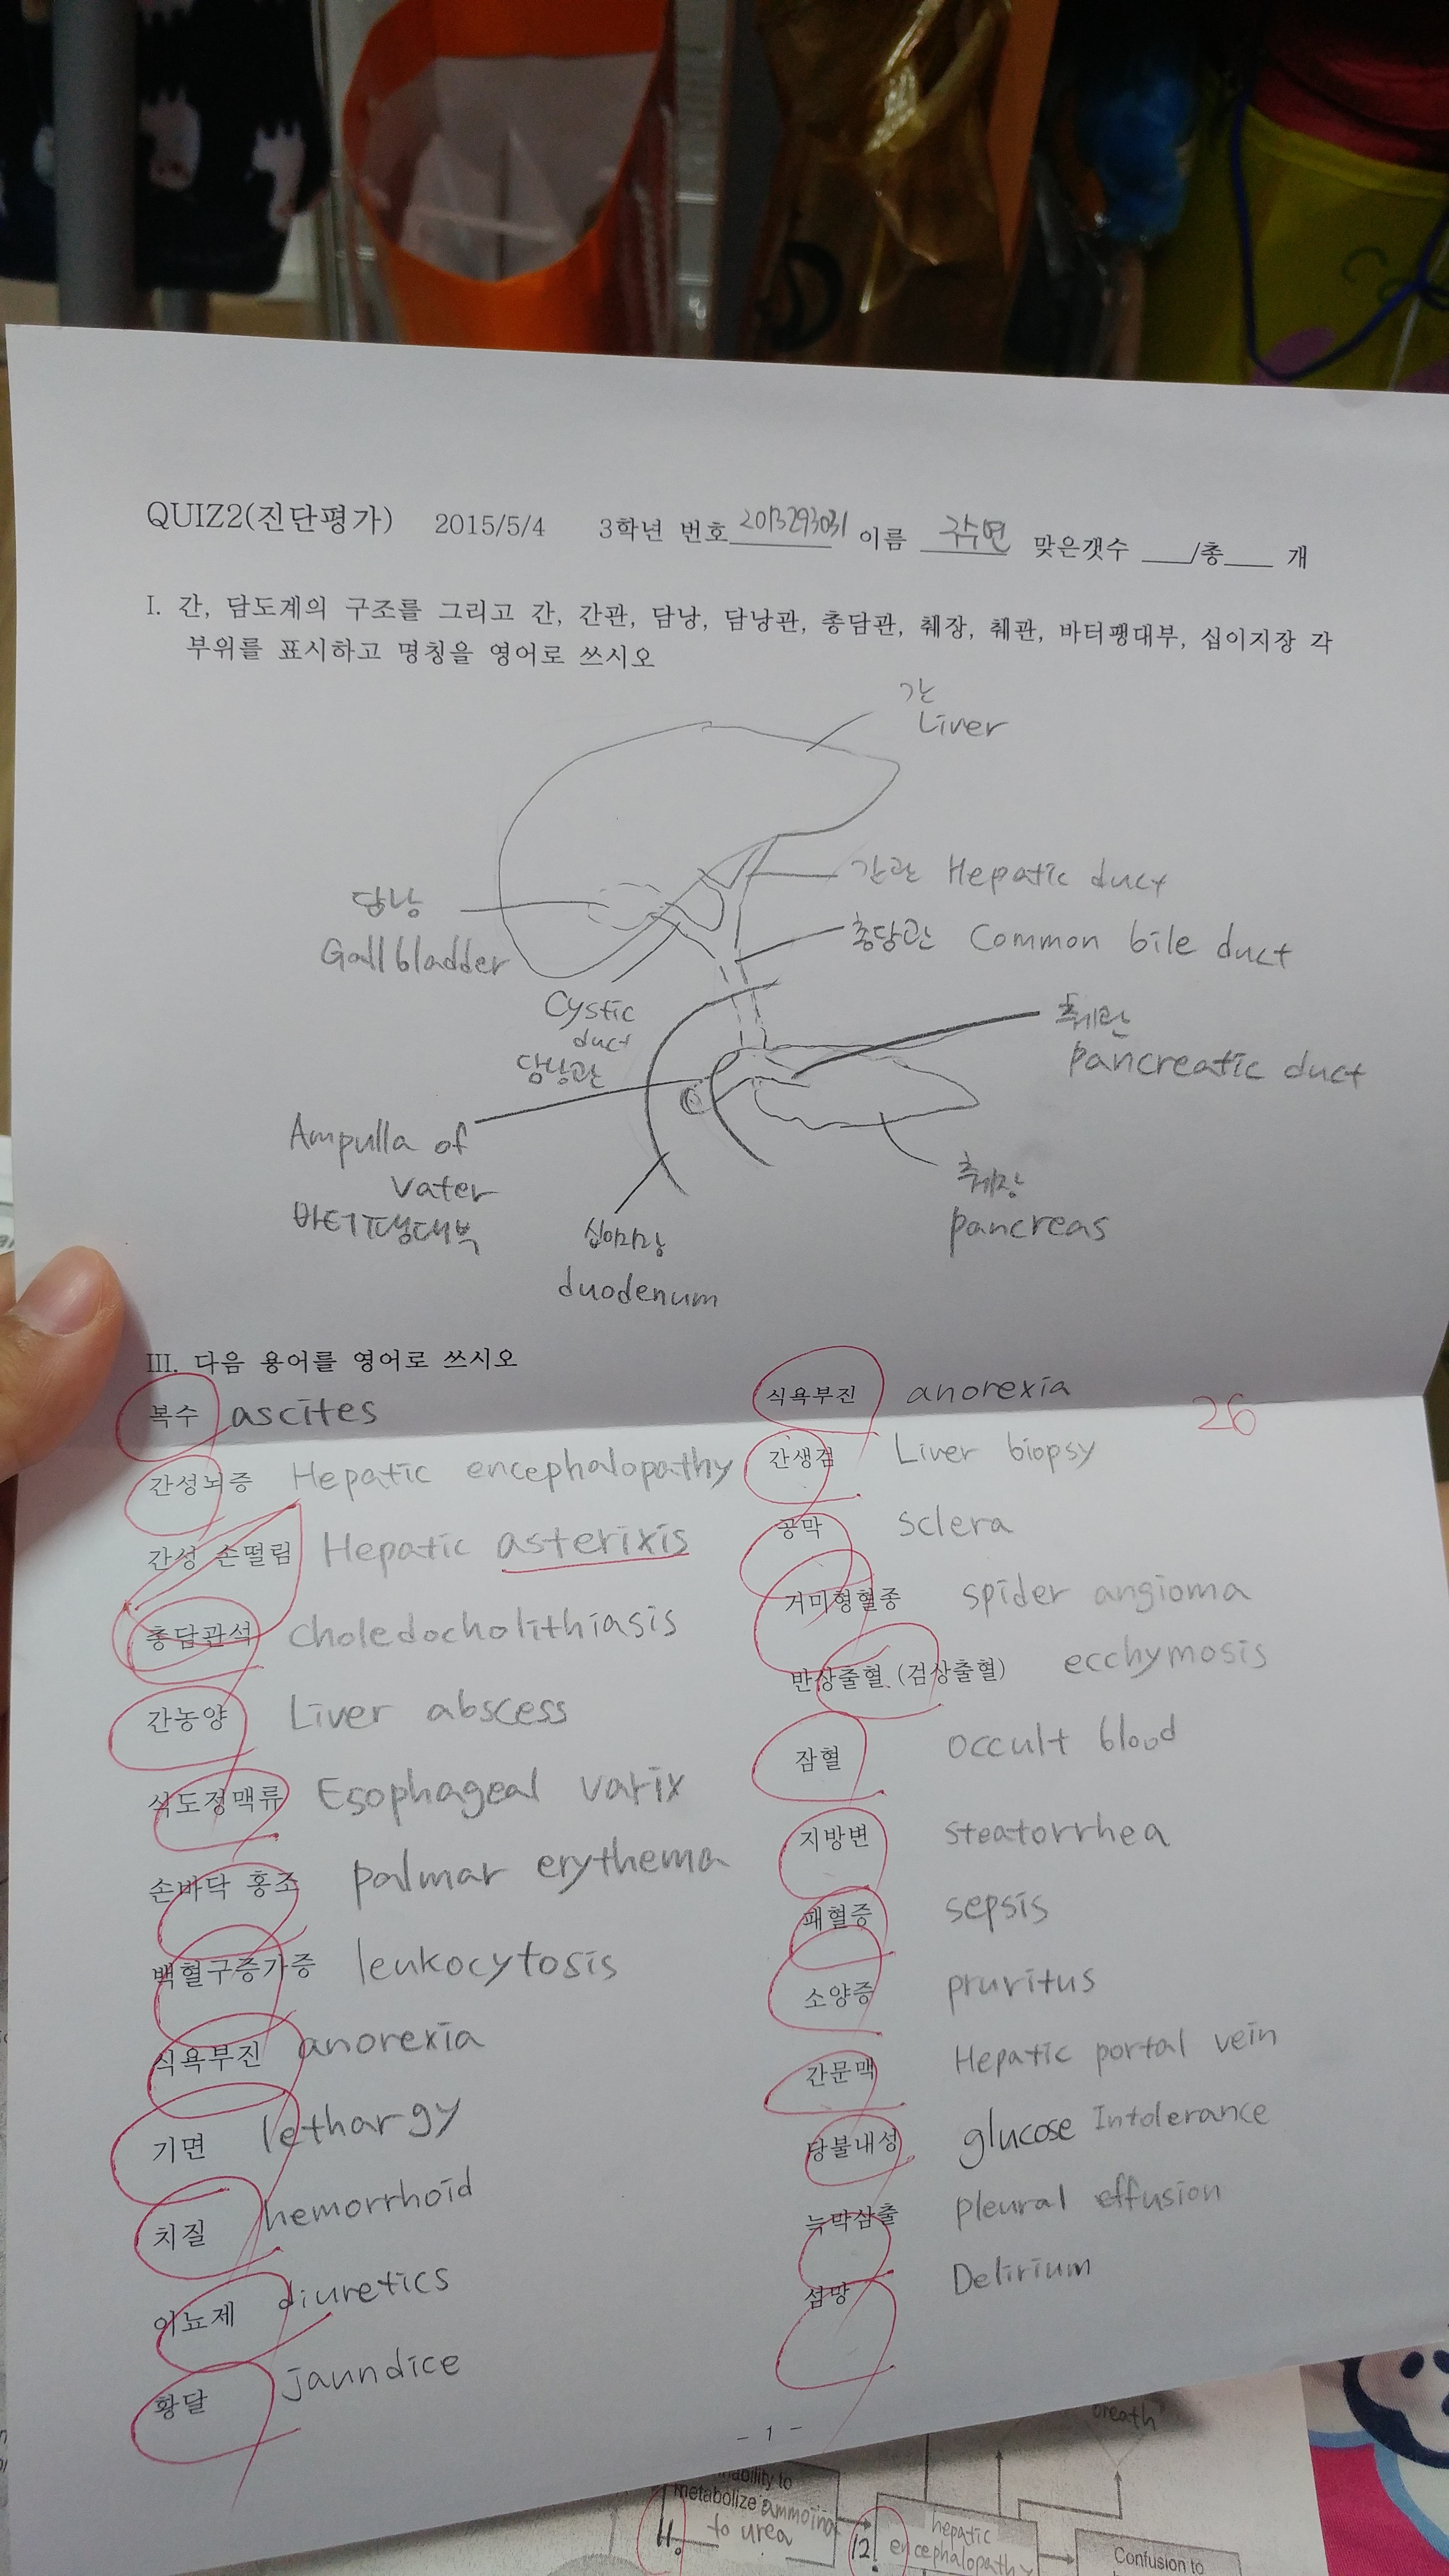 QUIZ2(진단평가) 2015/5/4 3학년 번호 2013293031 이름 구수연 맞은갯수 ___/총___ 개
I. 간, 담도계의 구조를 그리고 간, 간관, 담낭, 담낭관, 총담관, 췌장, 췌관, 바터팽대부, 십이지장 각
부위를 표시하고 명칭을 영어로 쓰시오
간
Liver
간관 Hepatic duct
담낭
Gall bladder
총담관 Common bile duct
Cystic
duct
담낭관
췌관
pancreatic duct
Ampulla of
Vater
바터팽대부
췌장
pancreas
십이지장
duodenum
III. 다음 용어를 영어로 쓰시오
복수 ascites
간성뇌증 Hepatic encephalopathy
간성 손떨림 Hepatic asterixis
총담관석 choledocholithiasis
간농양 Liver abscess
식도정맥류 Esophageal varix
손바닥 홍조 palmar erythema
백혈구증가증 leukocytosis
식욕부진 anorexia
기면 lethargy
치질 hemorrhoid
이뇨제 diuretics
황달 jaundice
식욕부진 anorexia
26
간생검 Liver biopsy
공막 sclera
거미형혈종 spider angioma
반상출혈 (검상출혈) ecchymosis
잠혈 occult blood
지방변 steatorrhea
패혈증 sepsis
소양증 pruritus
간문맥 Hepatic portal vein
당불내성 glucose Intolerance
늑막삼출 pleural effusion
섬망 Delirium
- 1 -
breath
metabolize ammoina
to urea
11.
12.
hepatic
encephalopathy
Confusion to